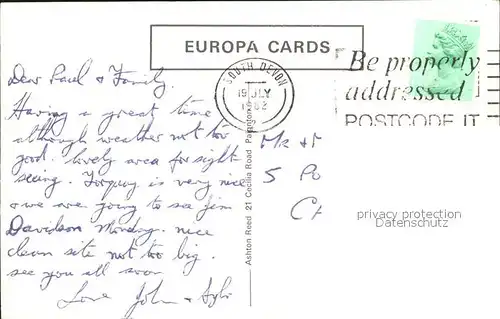 EUROPA CARDS
SOUTH DEVON
19 JLY
1982
Be properly
addressed
POSTCODE IT
Dear Paul & Family.
Having a great time
although weather not too
good. lovely area for sight
seeing. Torquay is very nice
& we are going to see Jim
Davidson Monday. nice
clean site not too big.
see you all soon
Love John &
Ashton Reed 21 Cecilia Road Paignton
Mr & M
5 Po
C
privacy protection
Datenschutz